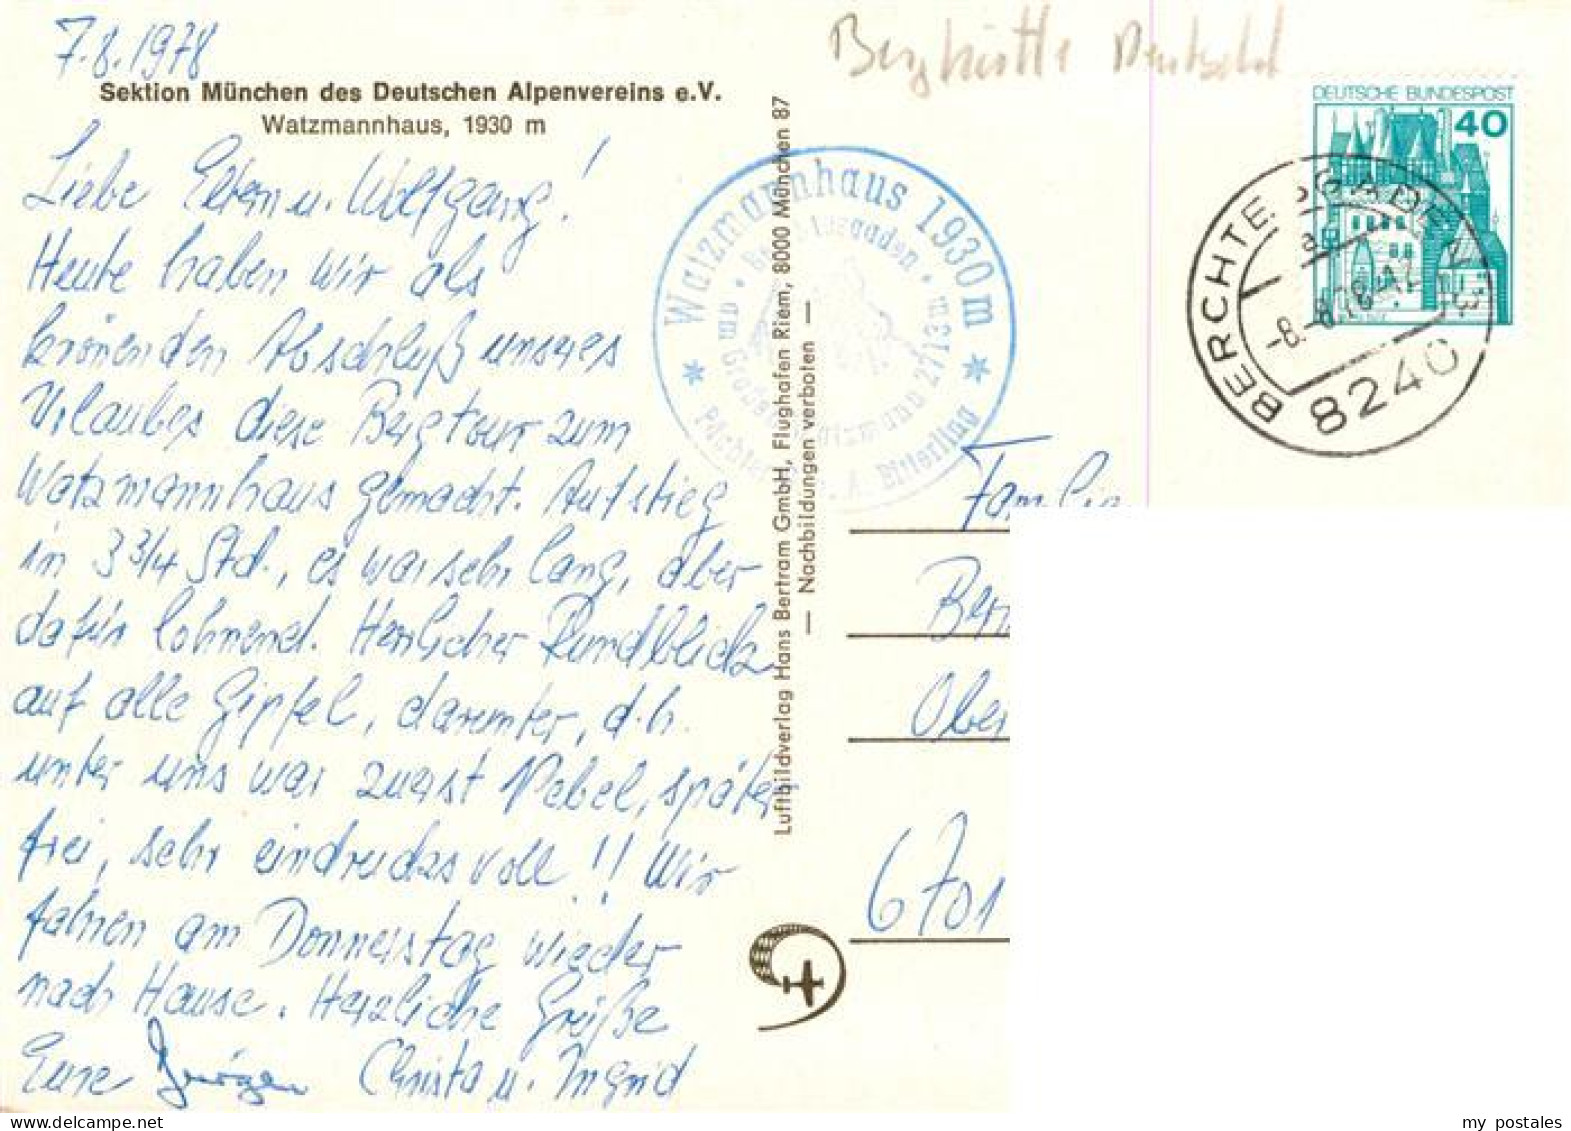 7.8.1978
Sektion München des Deutschen Alpenvereins e.V.
Watzmannhaus, 1930 m
Liebe Eltern u. Wolfgang!
Heute haben wir als
krönenden Abschluß unseres
Urlaubes diese Bergtour zum
Watzmannhaus gemacht. Aufstieg
in 3 3/4 Std., es war sehr lang, aber
dafür lohnend. Herrlicher Rundblick
auf alle Gipfel, darunter, d.h.
unter uns war zuerst Nebel, später
frei, sehr eindrucksvoll!! Wir
fahren am Donnerstag wieder
nach Hause. Herzliche Grüße
Eure Jürgen Christa u. Ingrid
Luftbildverlag Hans Bertram GmbH, Flughafen Riem, 8000 München 87
— Nachbildungen verboten —
Watzmannhaus 1930 m
2713 m
A. Bitterling
Berghütte Deutschl
DEUTSCHE BUNDESPOST
40
BERCHTESGADEN
a
-8.-8.78
8240
Familie
Ber
Ober
6701
my postales